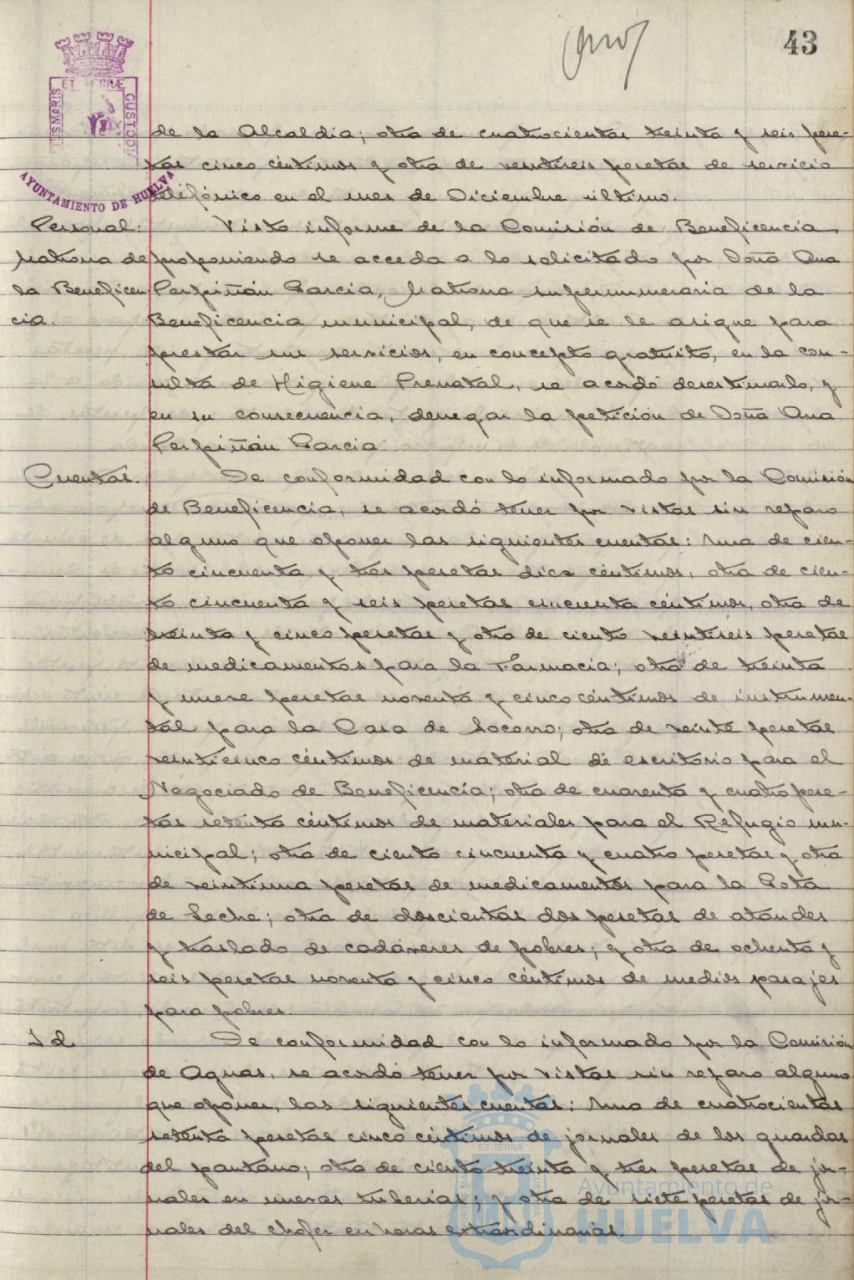 43
PORTUS MARIS ET TERRÆ CUSTODIA
AYUNTAMIENTO DE HUELVA
de la Alcaldia; otra de cuatrocientas treinta y seis pese-
tas cinco céntimos y otra de veintiseis pesetas de servicio
teléfónico en el mes de Diciembre último.
Personal: Visto informe de la Comisión de Beneficencia,
Matrona de proponiendo se acceda a lo solicitado por Doña Ana
la Beneficen- Perpiñán Garcia, Matrona supernumeraria de la
cia. Beneficencia municipal, de que se le asigne para
prestar sus servicios, en concepto gratuito, en la con-
sulta de Higiene Prenatal, se acordó desestimarlo, y
en su consecuencia, denegar la petición de Doña Ana
Perpiñán Garcia
Cuentas. De conformidad con lo informado por la Comisión
de Beneficencia, se acordó tener por vistas sin reparo
alguno que oponer las siguientes cuentas: Una de cien-
to cincuenta y tres pesetas diez céntimos, otra de cien-
to cincuenta y seis pesetas cincuenta céntimos, otra de
treinta y cinco pesetas y otra de ciento veintiseis pesetas
de medicamentos para la Farmacia; otra de treinta
y nueve pesetas noventa y cinco céntimos de instrumen-
tal para la Casa de Socorro; otra de veinte pesetas
veinticinco céntimos de material de escritorio para el
Negociado de Beneficencia; otra de cuarenta y cuatro pese-
tas setenta céntimos de materiales para el Refugio mu-
nicipal; otra de ciento cincuenta y cuatro pesetas y otra
de veintiuna pesetas de medicamentos para la Gota
de Leche; otra de doscientas dos pesetas de ataúdes
y traslado de cadáveres de pobres; y otra de ochenta y
seis pesetas noventa y cinco céntimos de medios pasajes
para pobres.
Id. De conformidad con lo informado por la Comisión
de Aguas, se acordó tener por vistas sin reparo alguno
que oponer, las siguientes cuentas: Una de cuatrocientas
setenta pesetas cinco céntimos de jornales de los guardas
del pantano; otra de ciento treinta y tres pesetas de jor-
nales en nuevas tuberias; y otra de siete pesetas de jor-
nales del chofer en horas extraordinarias.
Ayuntamiento de
HUELVA